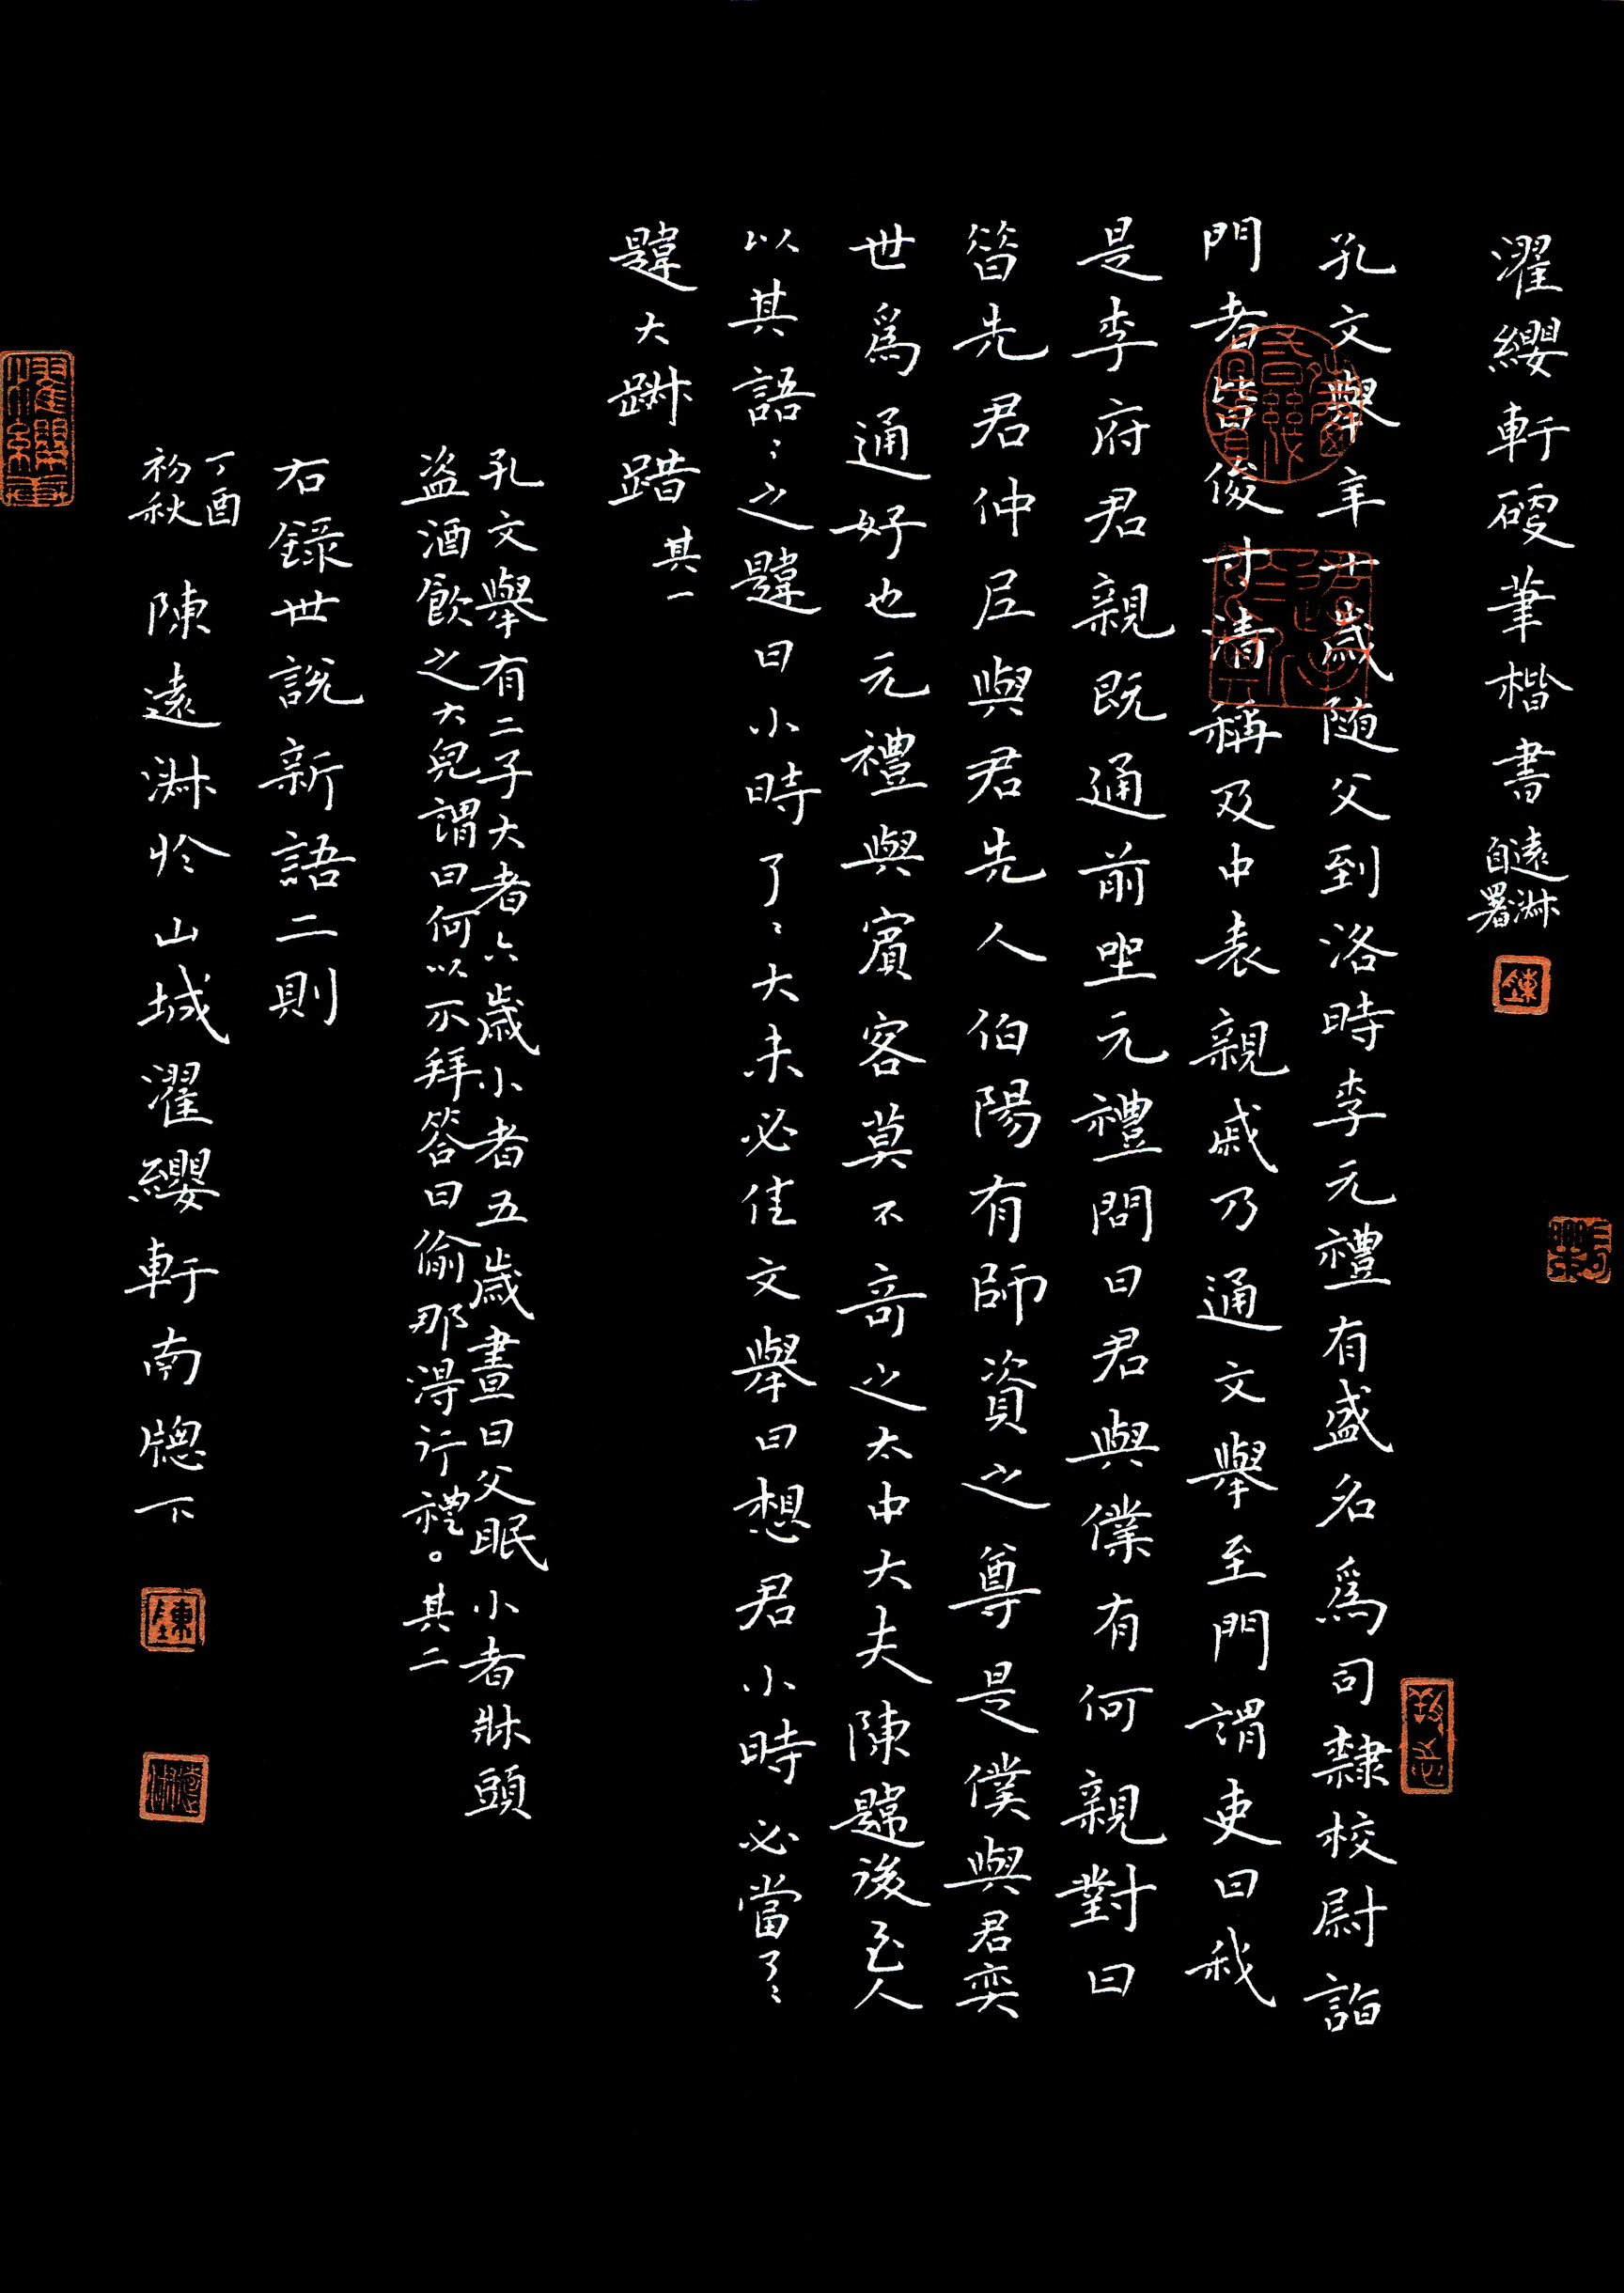 濯纓軒硬筆楷書 遠淋自署
孔文舉年十歲随父到洛時李元禮有盛名爲司隸校尉詣
門者皆俊才清稱及中表親戚乃通文舉至門謂吏曰我
是李府君親既通前坐元禮問曰君與僕有何親對曰
昔先君仲尼與君先人伯陽有師資之尊是僕與君奕
世爲通好也元禮與賓客莫不奇之太中大夫陳韙後至人
以其語〻之韙曰小時了〻大未必佳文舉曰想君小時必當了〻
韙大踧踖 其一
孔文舉有二子大者六歲小者五歲晝日父眠小者牀頭
盗酒飲之大兒謂曰何以不拜答曰偷那得行禮。其二
右錄世說新語二則
丁酉初秋 陳遠淋於山城濯纓軒南牕下